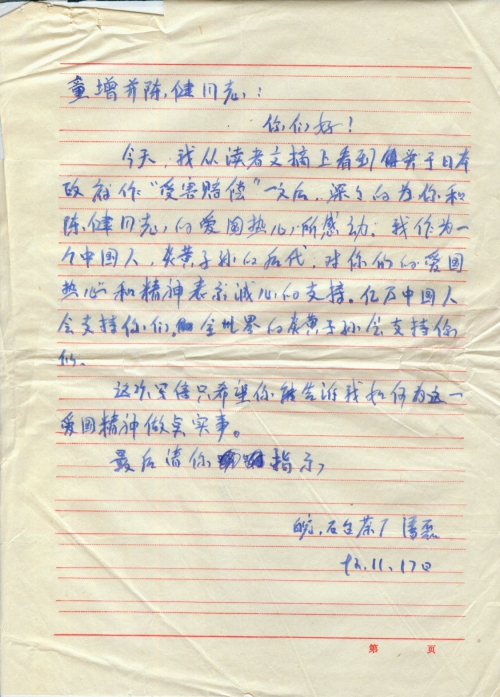 童增并陈健同志：
你们好！
今天，我从读者文摘上看到有关于日本
政府作“受害赔偿”一文后，深々的为你和
陈健同志的爱国热心所感动。我作为一
个中国人，炎黄子孙的后代，对你们的爱国
热心和精神表示诚心的支持。亿万中国人
会支持你们。全世界的炎黄子孙会支持你
们。
这次写信只希望你能告诉我如何为这一
爱国精神做点实事。
最后请你指示，
皖.石台茶厂 潘磊
11.17日
第 页